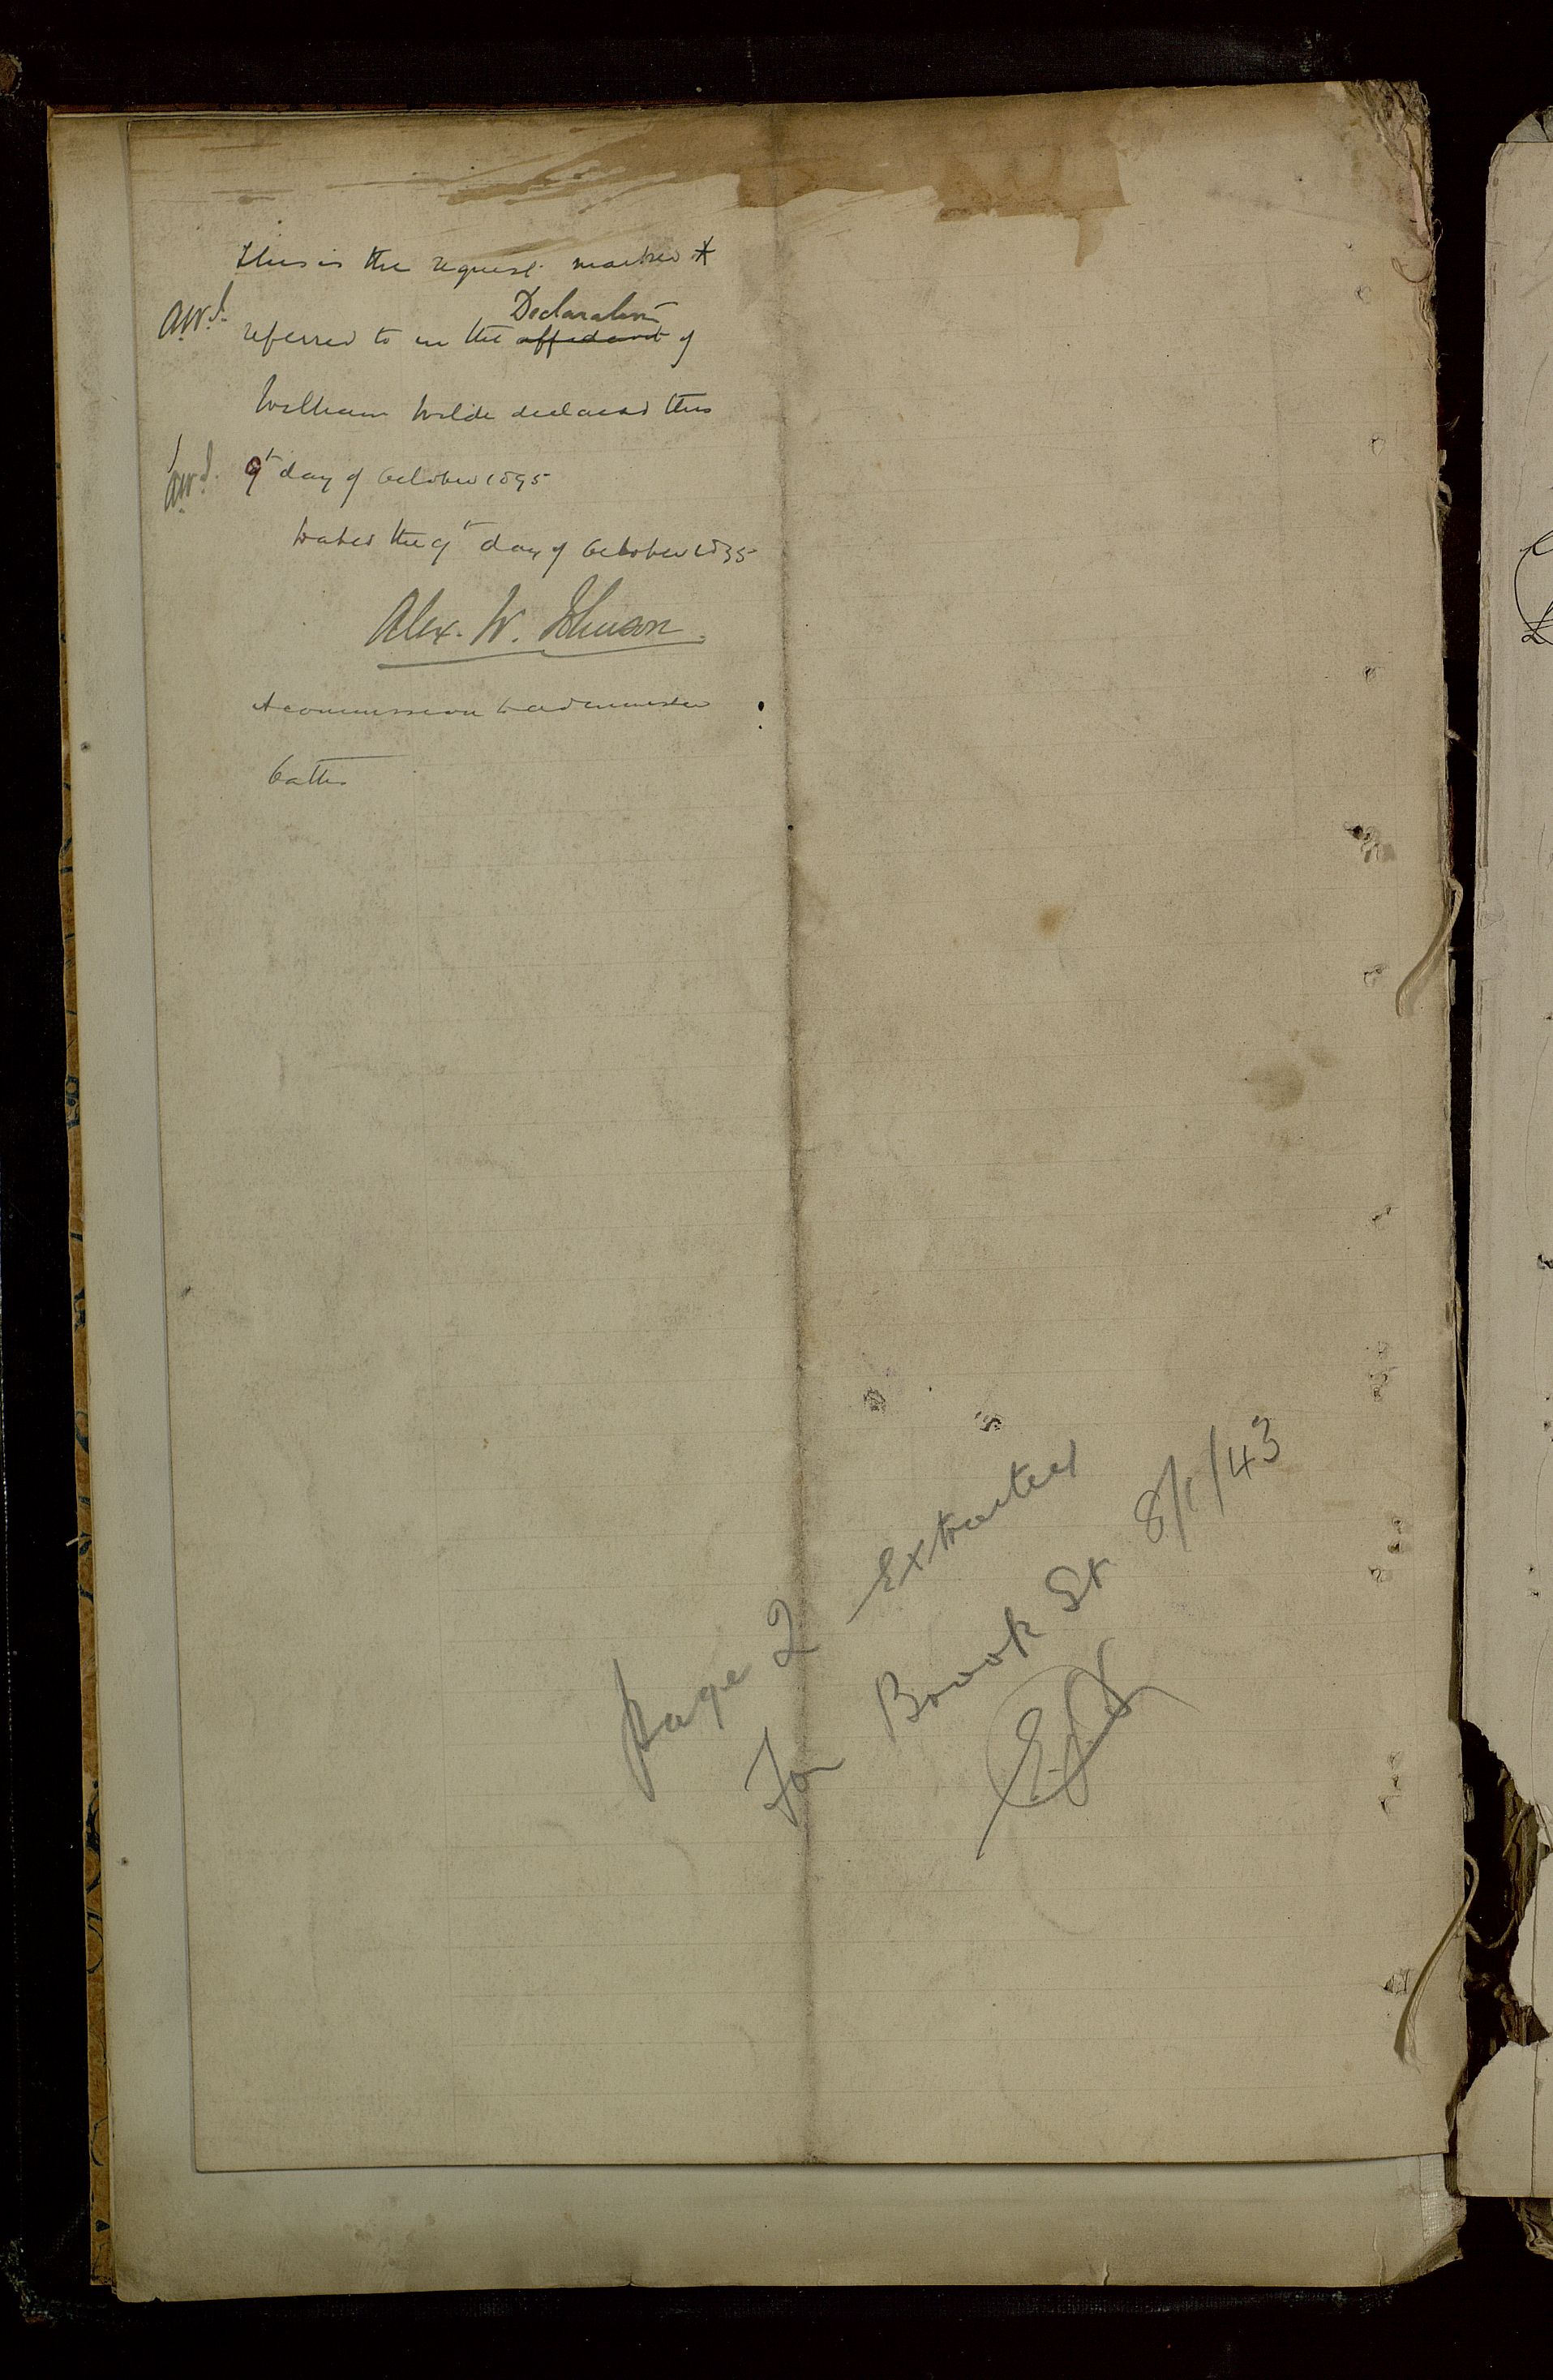 This is the request marked *
A.W.J. referred to in the affidavit Declaration of
William Wilde declared this
A.W.J. 9th day of October 1895
Dated the 9th day of October 1895
Alex. W. Johnson.
A commissioner to administer
Oaths
Page 2 Extracted
For Brook St 8/1/43